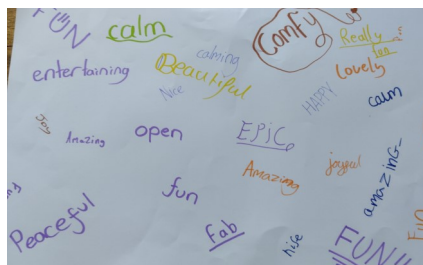 FUN
calm
calming
Comfy
Really
entertaining
Beautiful
Lovely
Nice
HAPPY
calm
Joy
Amazing
open
EPIC
Amazing
joyful
amazing
fun
Peaceful
Fab
nise
FUN
Fun